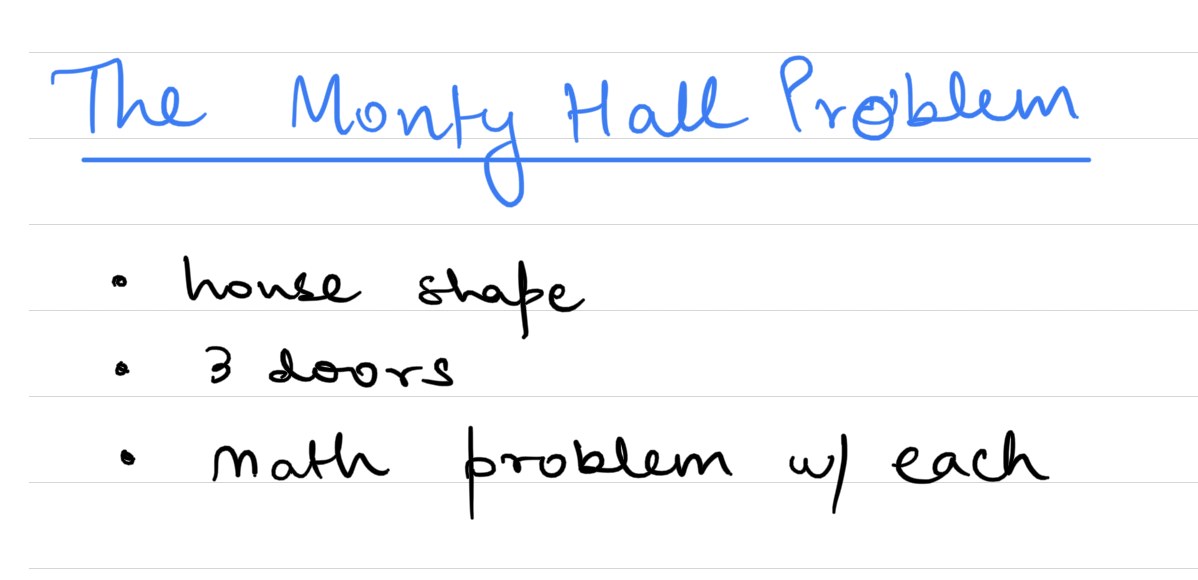 The Monty Hall Problem
• house shape
• 3 doors
• math problem w/ each